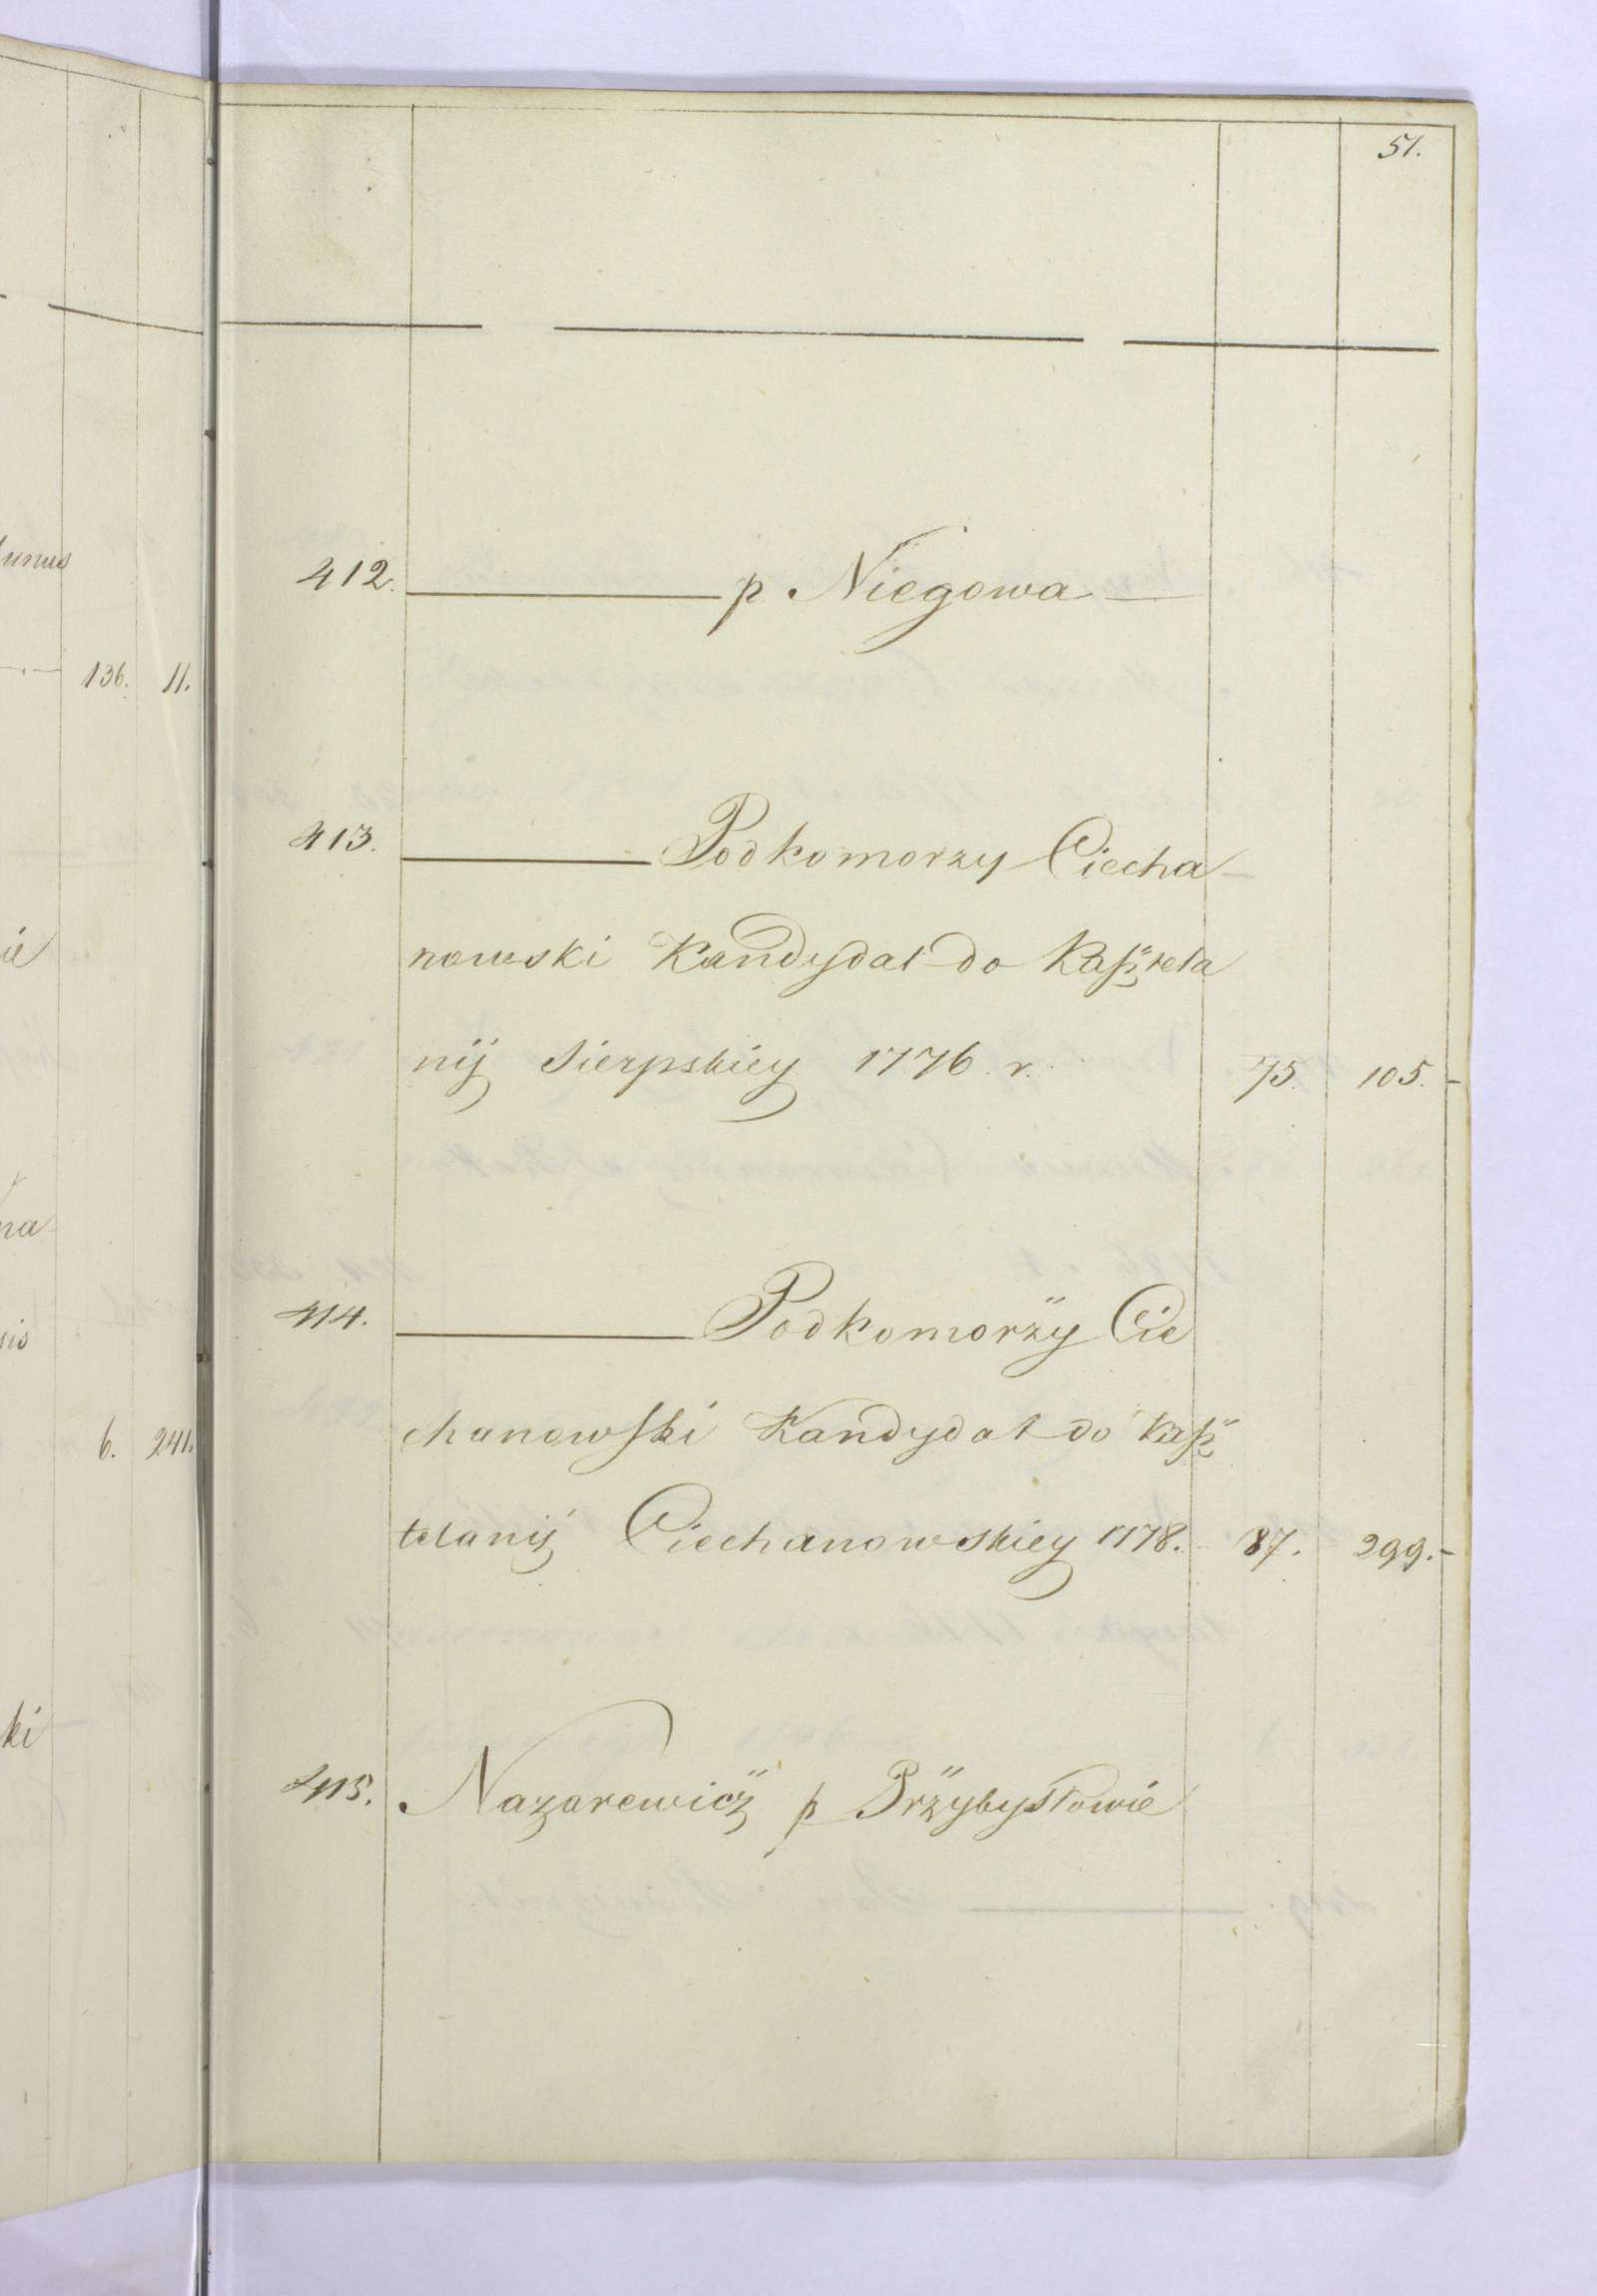 51.
412. p Niegowa
413. Podkomorzy Ciecha
nowski Kandydat do Kaſztela
nij Sierpskiey 1776 r. 75. 105.
414. Podkomorzÿ Cie
chanowſki Kandydat do Kaſz
telanij Ciechanowskiey 1778. 87. 299.
415. Nazarewicz p Przybysłowie
unus
136. 11.
ie
na
sis
6. 241.
ki